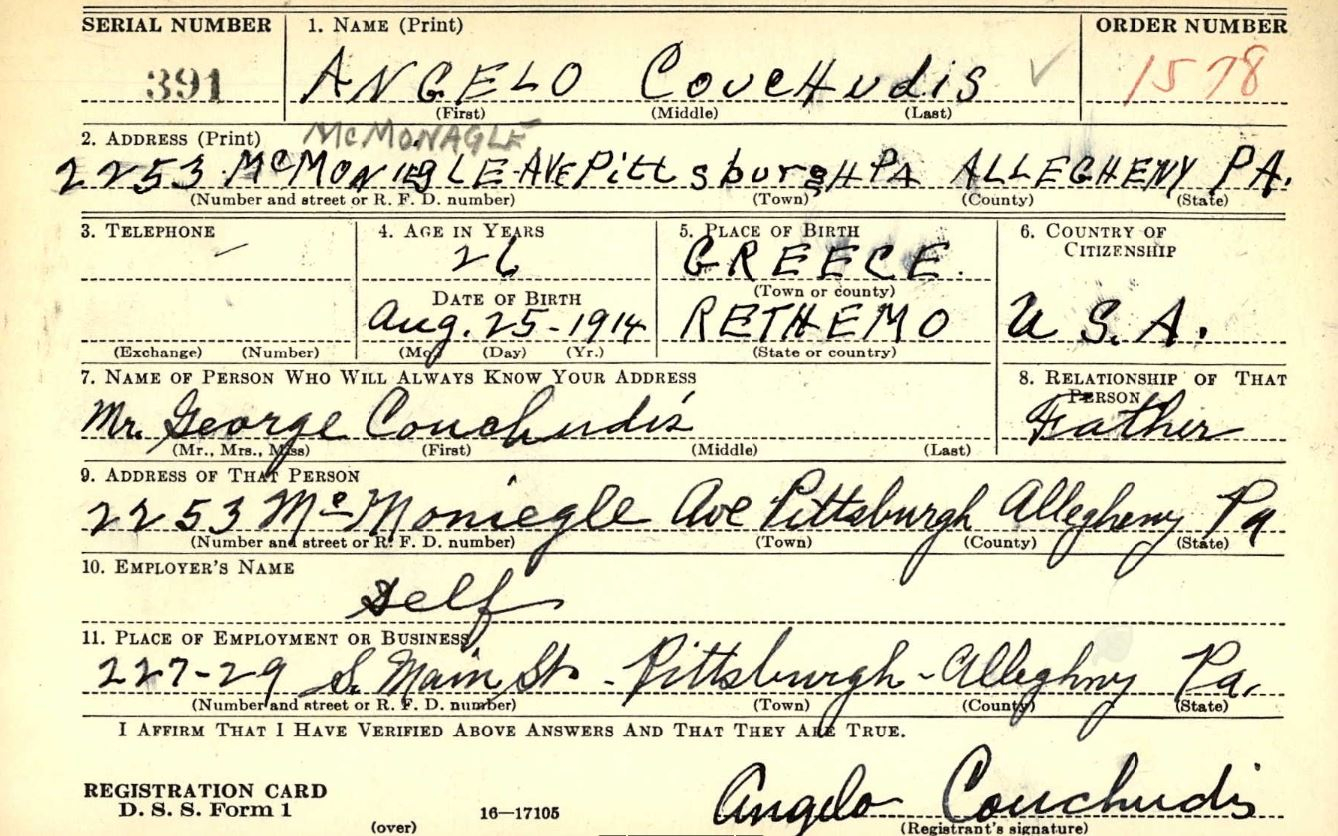 SERIAL NUMBER 1. NAME (Print) ORDER NUMBER
391 ANGELO CoucHudis ✓ 1578
(First) (Middle) (Last)
2. ADDRESS (Print) McMONAGLE
2253 McMONIEgLE AVE Pittsburgh Pa ALLEGHENY PA.
(Number and street or R. F. D. number) (Town) (County) (State)
3. TELEPHONE 4. AGE IN YEARS 5. PLACE OF BIRTH 6. COUNTRY OF
CITIZENSHIP
– 26 GREECE.
(Town or county)
DATE OF BIRTH
Aug. 25-1914 RETHEMO U.S.A.
(Exchange) (Number) (Mo.) (Day) (Yr.) (State or country)
7. NAME OF PERSON WHO WILL ALWAYS KNOW YOUR ADDRESS 8. RELATIONSHIP OF THAT
PERSON
Mr. George Couchudis Father
(Mr., Mrs., Miss) (First) (Middle) (Last)
9. ADDRESS OF THAT PERSON
2253 McMoniegle Ave Pittsburgh Allegheny Pa
(Number and street or R. F. D. number) (Town) (County) (State)
10. EMPLOYER'S NAME
Self
11. PLACE OF EMPLOYMENT OR BUSINESS
227-29 S. Main St. - Pittsburgh - Alleghny Pa.
(Number and street or R. F. D. number) (Town) (County) (State)
I AFFIRM THAT I HAVE VERIFIED ABOVE ANSWERS AND THAT THEY ARE TRUE.
REGISTRATION CARD
D. S. S. Form 1 16—17105 Angelo Couchudis
(over) (Registrant's signature)